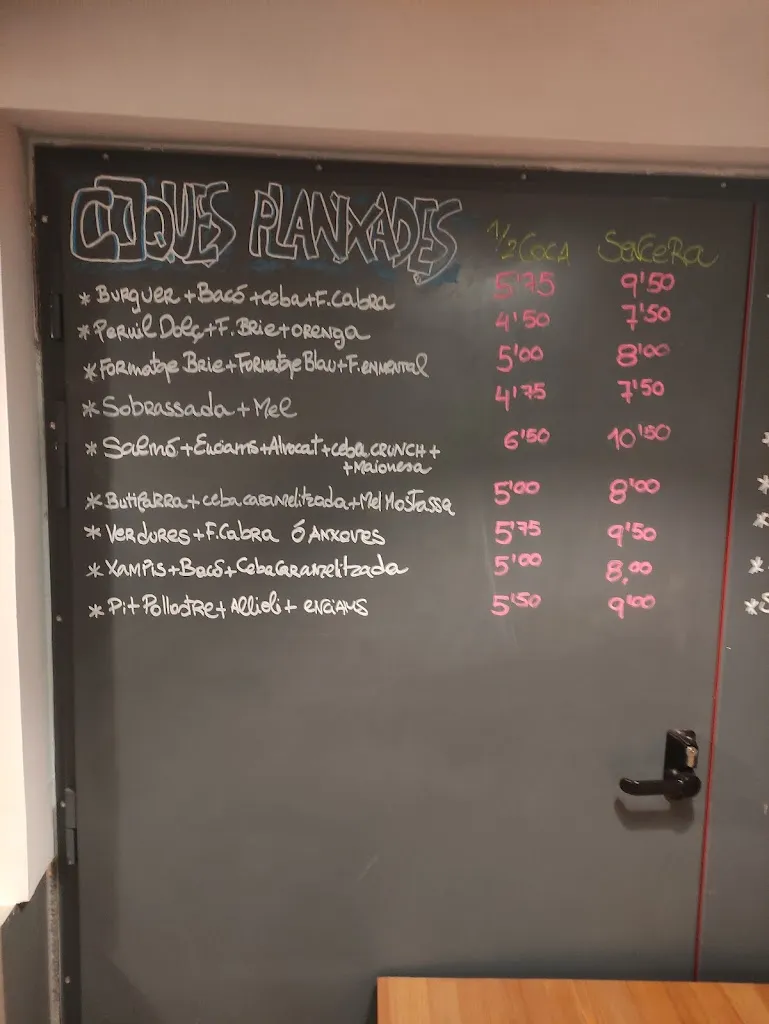 COQUES PLANXADES 1/2 COCA SENCERA
* BURGUER + BACÓ + CEBA + F. CABRA 5'75 9'50
* PERNIL DOLÇ + F. BRIE + ORENGA 4'50 7'50
* FORMATGE BRIE + FORMATGE BLAU + F. ENMENTAL 5'00 8'00
* SOBRASSADA + MEL 4'75 7'50
* SALMÓ + ENCIAMS + ALVOCAT + CEBA CRUNCH + 6'50 10'50
+ MAIONESA
* BUTIFARRA + CEBA CARAMELITZADA + MEL MOSTASSA 5'00 8'00
* VERDURES + F. CABRA Ó ANXOVES 5'75 9'50
* XAMPIS + BACÓ + CEBA CARAMELITZADA 5'00 8,00
* PIT POLLASTRE + ALLIOLI + ENCIAMS 5'50 9'00